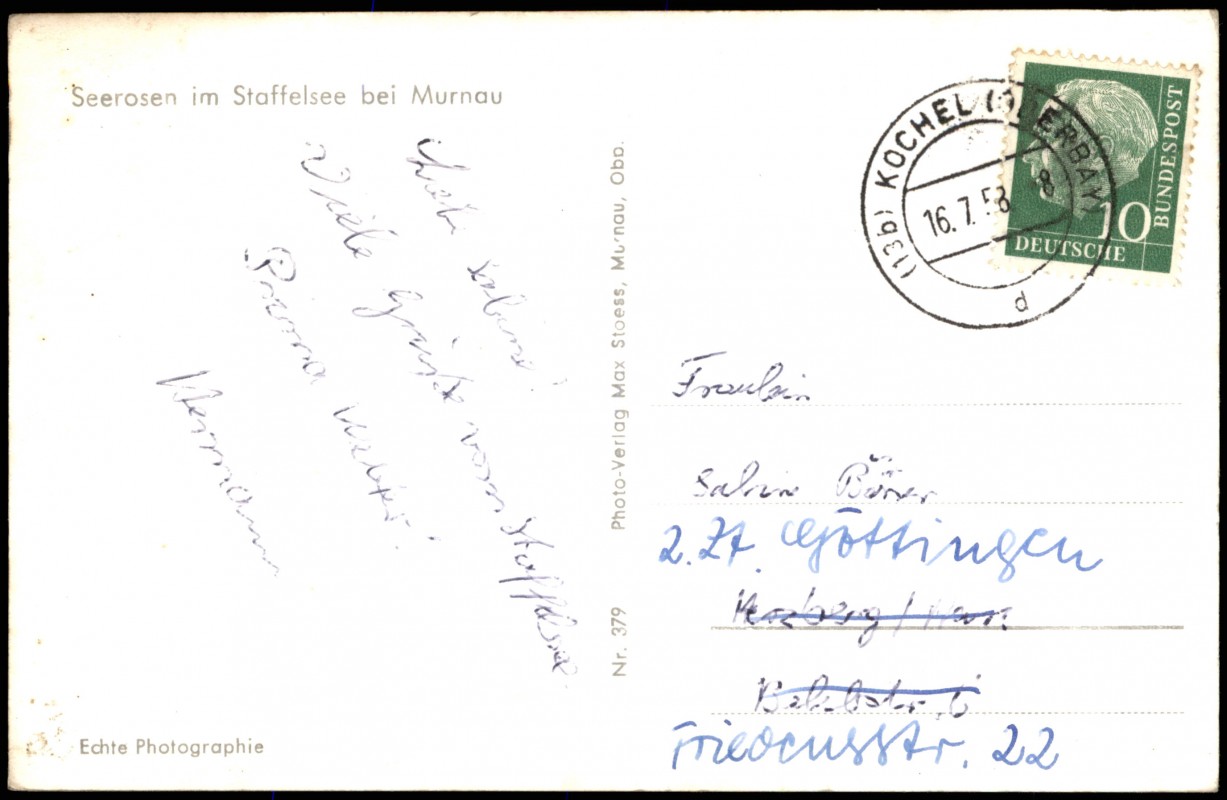 Seerosen im Staffelsee bei Murnau
Liebe Sabine!
Viele Grüße vom Staffelsee
Prima Wetter!
Hermann
Echte Photographie
Nr. 379
Photo-Verlag Max Stoess, Murnau, Obb.
(13b) KOCHEL (OBERBAY)
16.7.58
8
d
DEUTSCHE
BUNDESPOST
10
Fräulein
Sabine
z. Zt. Göttingen
Herzberg / Harz
Friedensstr. 22